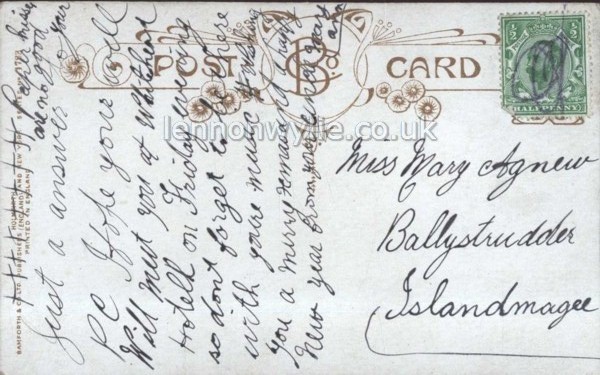 POST CARD
HALFPENNY
Miss Mary Agnew
Ballystrudder
Islandmagee
Just a answer to your
P.C. Hope your well
Will meet you at
Hotell on Friday evening
so don't forget to be there
with youre music Wishing
you a merry xmas & happy
New year from your
Mary
are no good
BAMFORTH & CO. LTD. PUBLISHERS (ENGLAND) AND NEW YORK
PRINTED IN ENGLAND
lennonwylie.co.uk